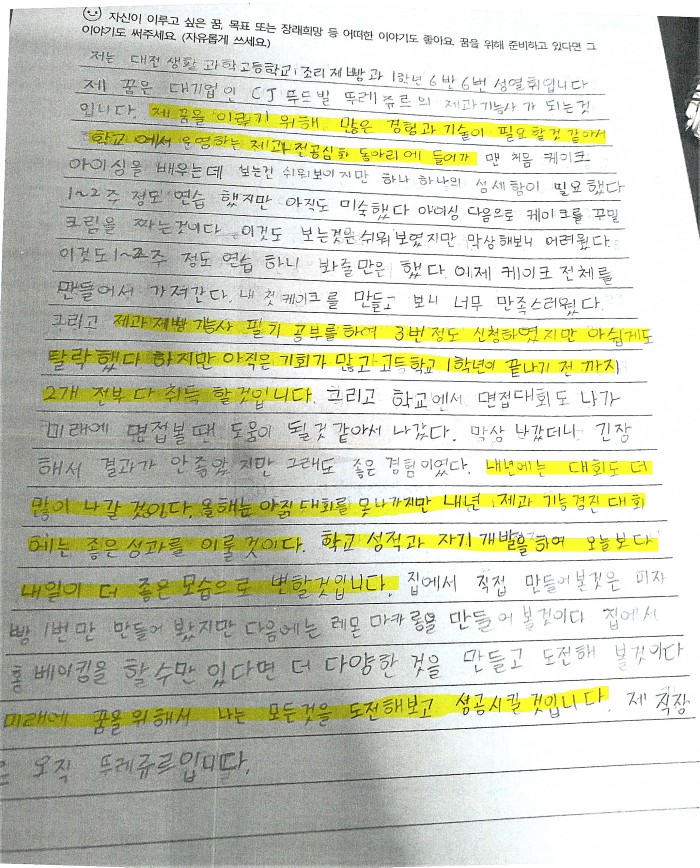 자신이 이루고 싶은 꿈, 목표 또는 장래희망 등 어떠한 이야기도 좋아요. 꿈을 위해 준비하고 있다면 그
이야기도 써주세요. (자유롭게 쓰세요.)
저는 대전 생활 과학고등학교 조리제빵과 1학년 6반 6번 성열휘입니다
제 꿈은 대기업인 CJ 푸드빌 뚜레쥬르의 제과기능사가 되는것
입니다. 제 꿈을 이루기 위해, 많은 경험과 기술이 필요할것 같아서
학교에서 운영하는 제과전공심화 동아리에 들어가 맨 처음 케이크
아이싱을 배우는데 보는건 쉬워보이지만 하나 하나의 섬세함이 필요했다
1~2주 정도 연습 했지만 아직도 미숙했다 아이싱 다음으로 케이크를 꾸밀
크림을 짜는것이다 이것도 보는것은 쉬워 보였지만 막상해보니 어려웠다.
이것도 1~2주 정도 연습 하니 봐줄만은 했다. 이제 케이크 전체를
만들어서 가져간다. 내 첫 케이크를 만들고 보니 너무 만족스러웠다.
그리고 제과제빵기능사 필기 공부를하여 3번정도 신청하였지만 아쉽게도
탈락했다 하지만 아직은 기회가 많고 고등학교 1학년이 끝나기 전 까지
2개 전부 다 취득 할것입니다. 그리고 학교에서 면접대회도 나가
미래에 면접볼 때 도움이 될것 같아서 나갔다. 막상 나갔더니 긴장
해서 결과가 안좋았지만 그래도 좋은 경험이었다. 내년에는 대회도 더
많이 나갈 것이다. 올해는 아직 대회를 못나가지만 내년, 제과 기능경진대회
에는 좋은성과를 이룰것이다. 학교 성적과 자기개발을하여 오늘보다
내일이 더 좋은 모습으로 변할것입니다. 집에서 직접 만들어본것은 피자
빵 1번만 만들어 봤지만 다음에는 레몬 마카롱을 만들어 볼것이다 집에서
홈베이킹을 할수만 있다면 더 다양한 것을 만들고 도전해 볼것이다
미래에 꿈을 위해서 나는 모든것을 도전해보고 성공시킬 것입니다. 제 직장
은 오직 뚜레쥬르입니다.